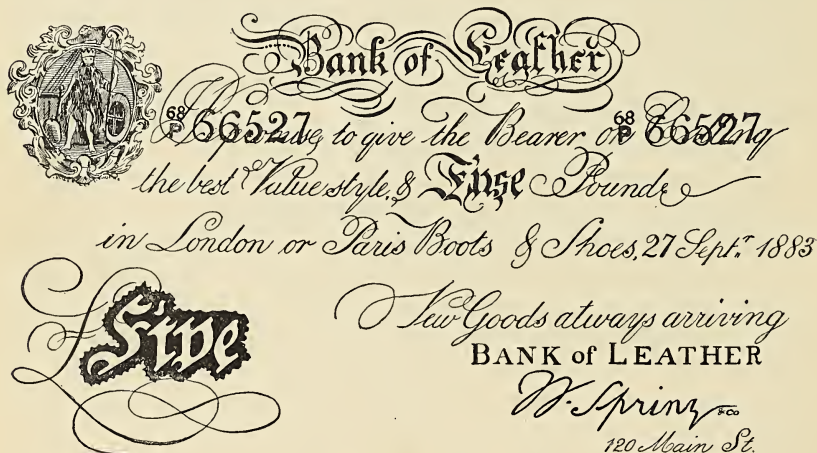 Bank of Leather
68 P 66527 68 P 66527
I Promise to give the Bearer on
the best Value style, &
in London or Paris Boots & Shoes, 27 Sept.r 1883
£ Five
New Goods always arriving
BANK of LEATHER
W. Sprinz & Co
120 Main St.